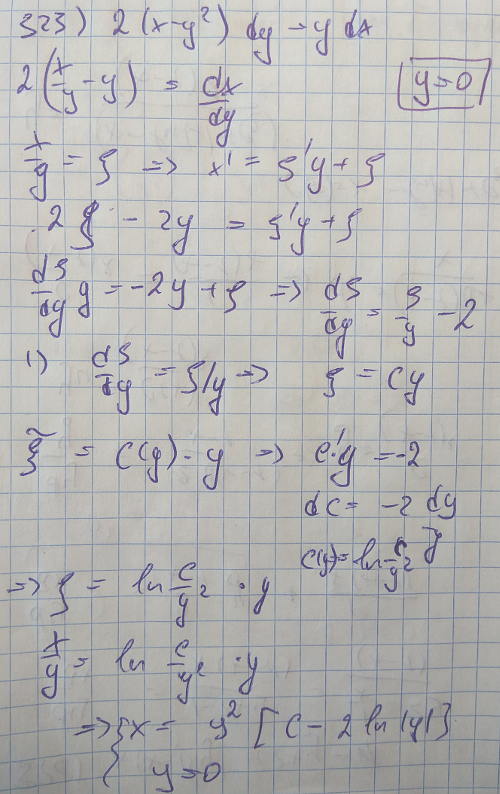 323) 2(x-y²) dy = y dx
2(x/y - y) = dx/dy   y=0
x/y = ξ => x' = ξ'y + ξ
2ξ - 2y = ξ'y + ξ
dξ/dy y = -2y + ξ => dξ/dy = ξ/y - 2
1) dξ/dy = ξ/y => ξ = Cy
ξ̃ = C(y)·y => C'·y = -2
dC = -2 dy/y
C(y) = ln C/y²
=> ξ = ln C/y² · y
x/y = ln C/y² · y
=> { x = y² [C - 2 ln|y|]
y=0